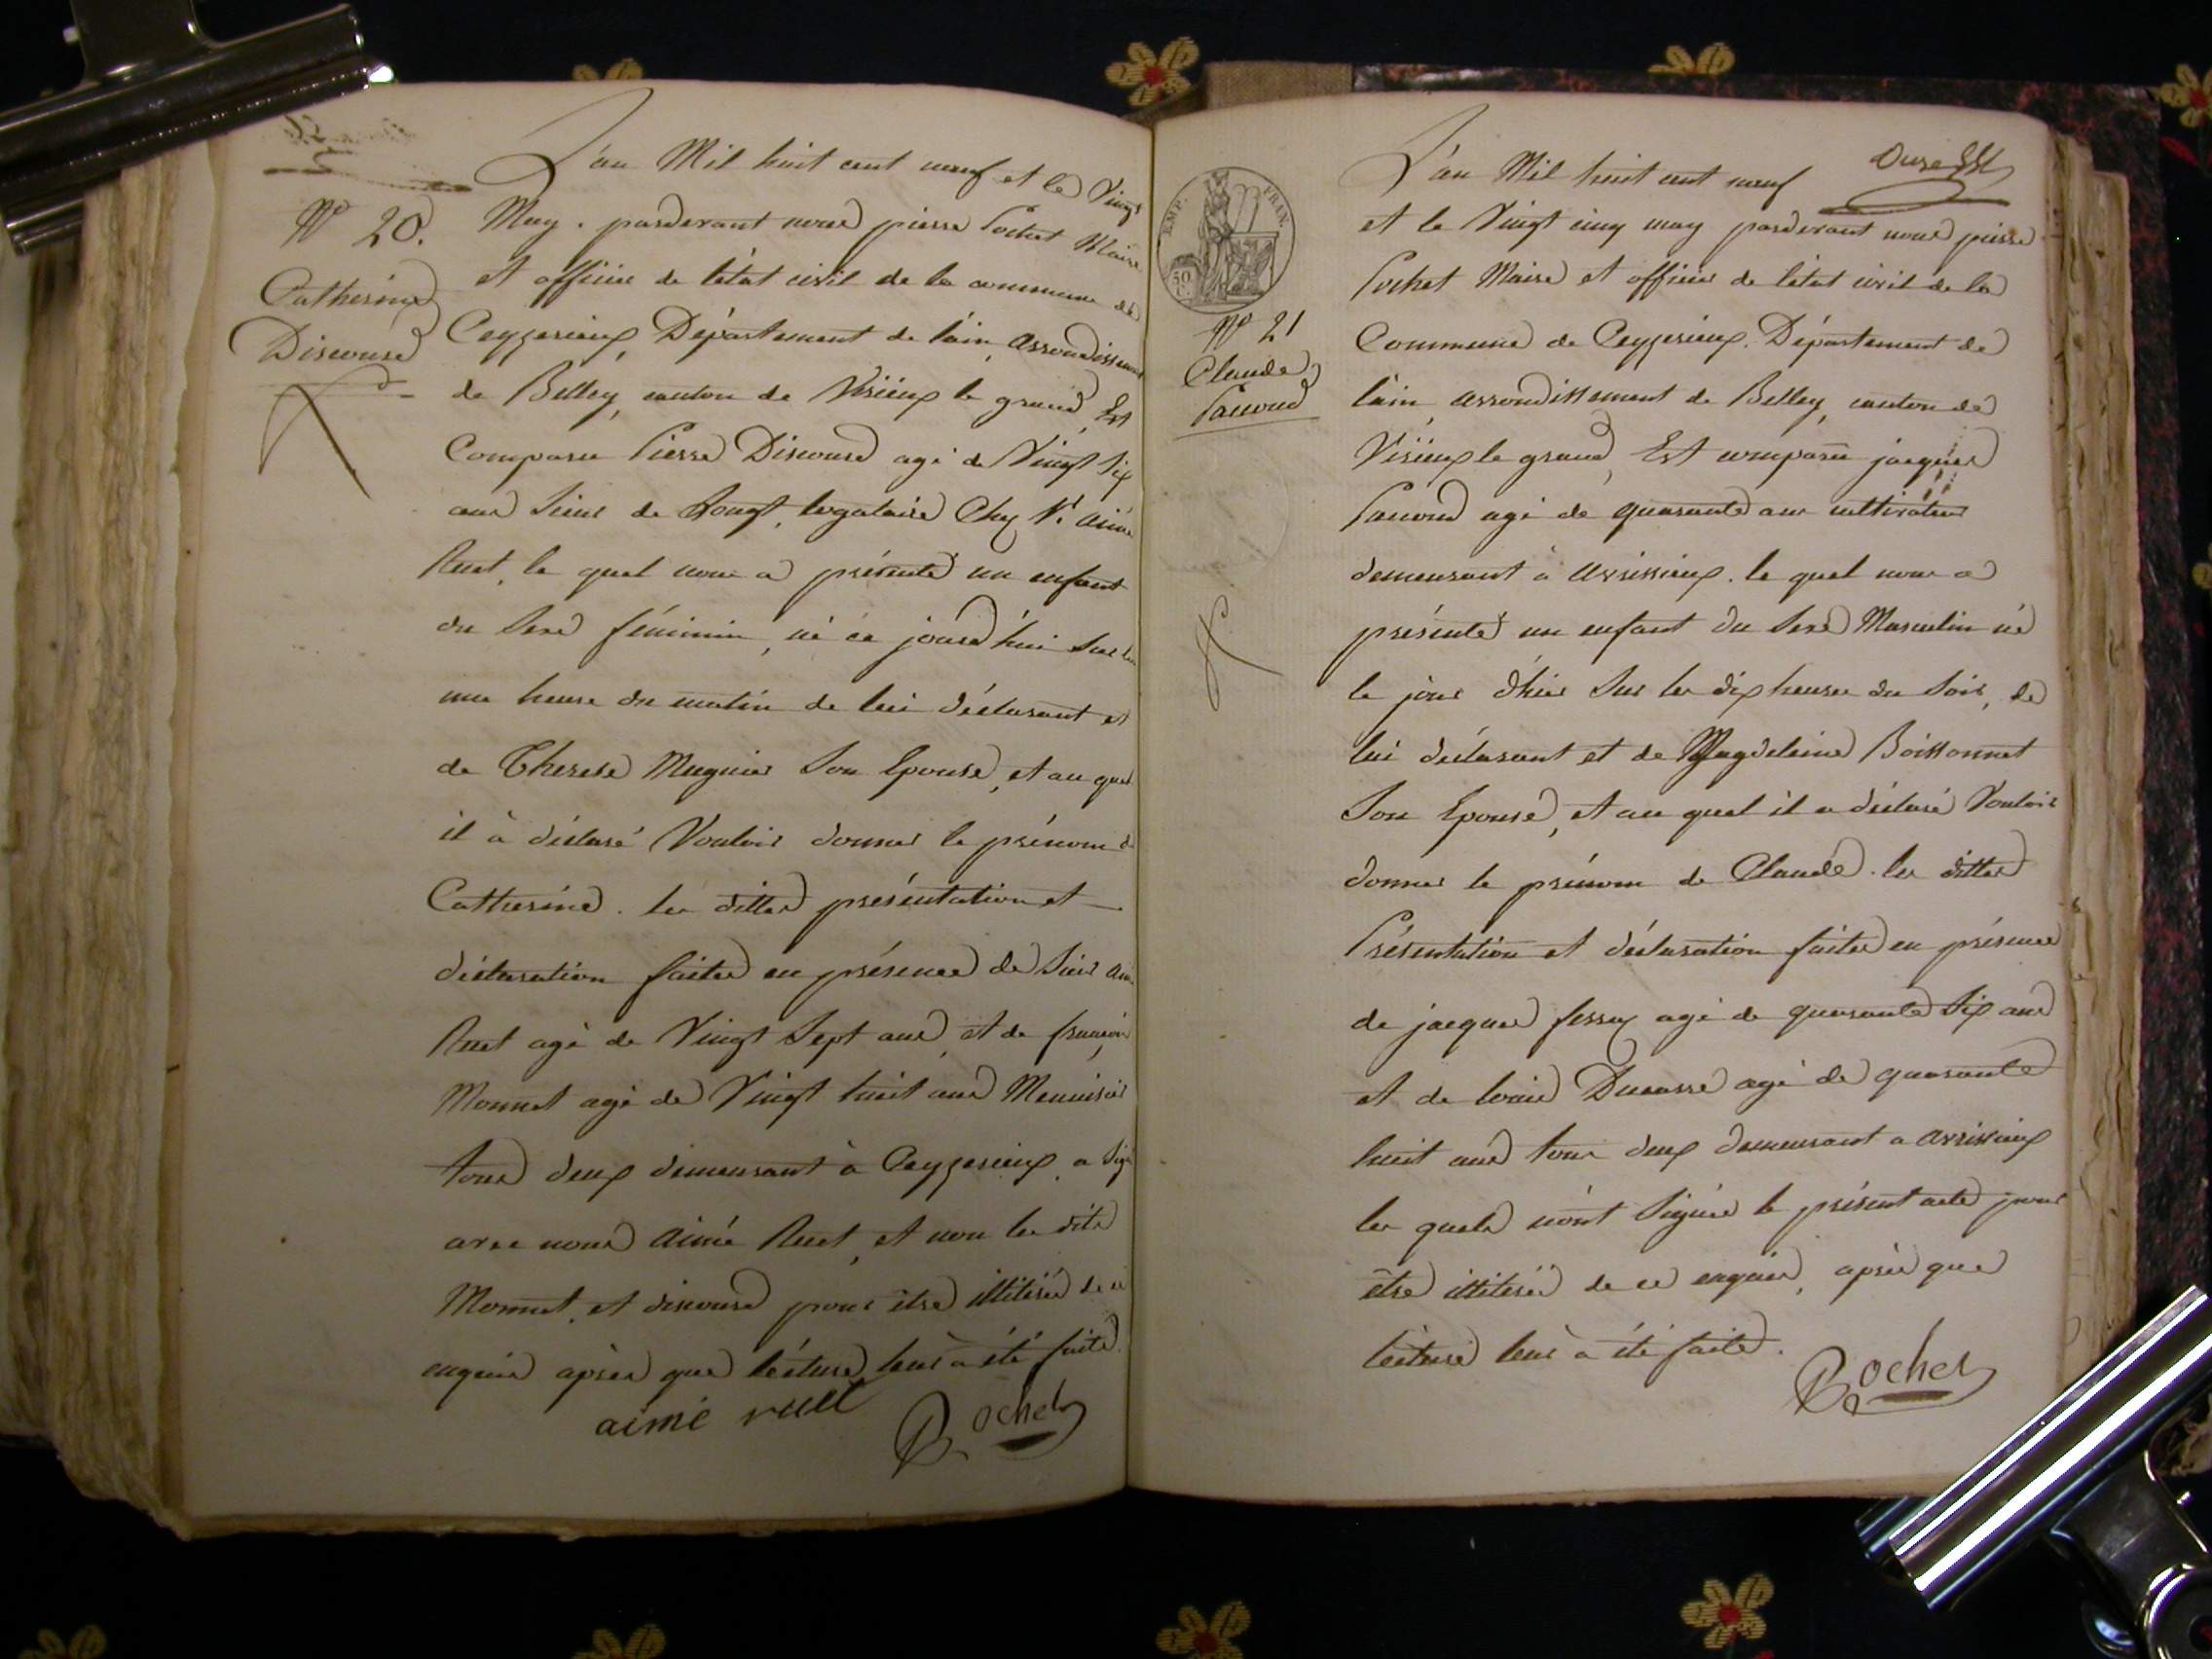 N° 20.
Catherine
Discours
L'an Mil huit cent neuf et le Vingt
May. pardevant nous pierre Pochet Maire
et officier de l'état civil de la commune de
Ceyzerieux, Département de l'ain, arrondissement
de Belley, canton de Virieux le grand, Est
Comparu Pierre Discours agé de Vingt Six
ans Sieur de Long, Chez Sr. aimé
Ruet, le quel nous a présenté un enfant
du Sexe féminin, né ce jourd'hui Sur les
une heure du matin de lui déclarant et
de Therese Mugnier Son Epouse, et au quel
il à déclaré Vouloir donner le prénom de
Catherine. les dittes présentation et
déclaration faites en présence de Sieur aimé
Ruet agé de Vingt Sept ans, et de françois
Monnet agé de Vingt huit ans Menuisier
tous deux demeurant à Ceyzerieux, a Signé
avec nous Aimé Ruet, et non les dits
Monnet, et discours pour être illitérés de ce
enquis après que lecture leur à été faite.
aimé ruet Pochet
EMP. FRAN.
50 C.
N° 21
Claude
Pauvoud
L'an Mil huit cent neuf
et le Vingt cinq may pardevant nous pierre
Pochet Maire et officier de l'état civil de la
Commune de Ceyzerieux. Département de
l'ain, arrondissement de Belley, canton de
Virieux le grand, Est comparu jacques
agé de quarante ans cultivateur
demeurant à avrissieux. le quel nous a
présenté un enfant du Sexe Masculin né
le jour d'hier Sur les dix heures du Soir, de
lui déclarant et de Magdeleine Boissonnet
Son Epouse, et au quel il a déclaré Vouloir
donner le prénom de Claude. les dittes
Présentation et déclaration faites en présence
de jacques agé de quarante Six ans
et de louis Ducarre agé de quarante
huit ans tous deux demeurant a avrissieux
les quels n'ont Signés le présent acte pour
être illitérés de ce enquis, après que
lecture leur à été faite.
Pochet